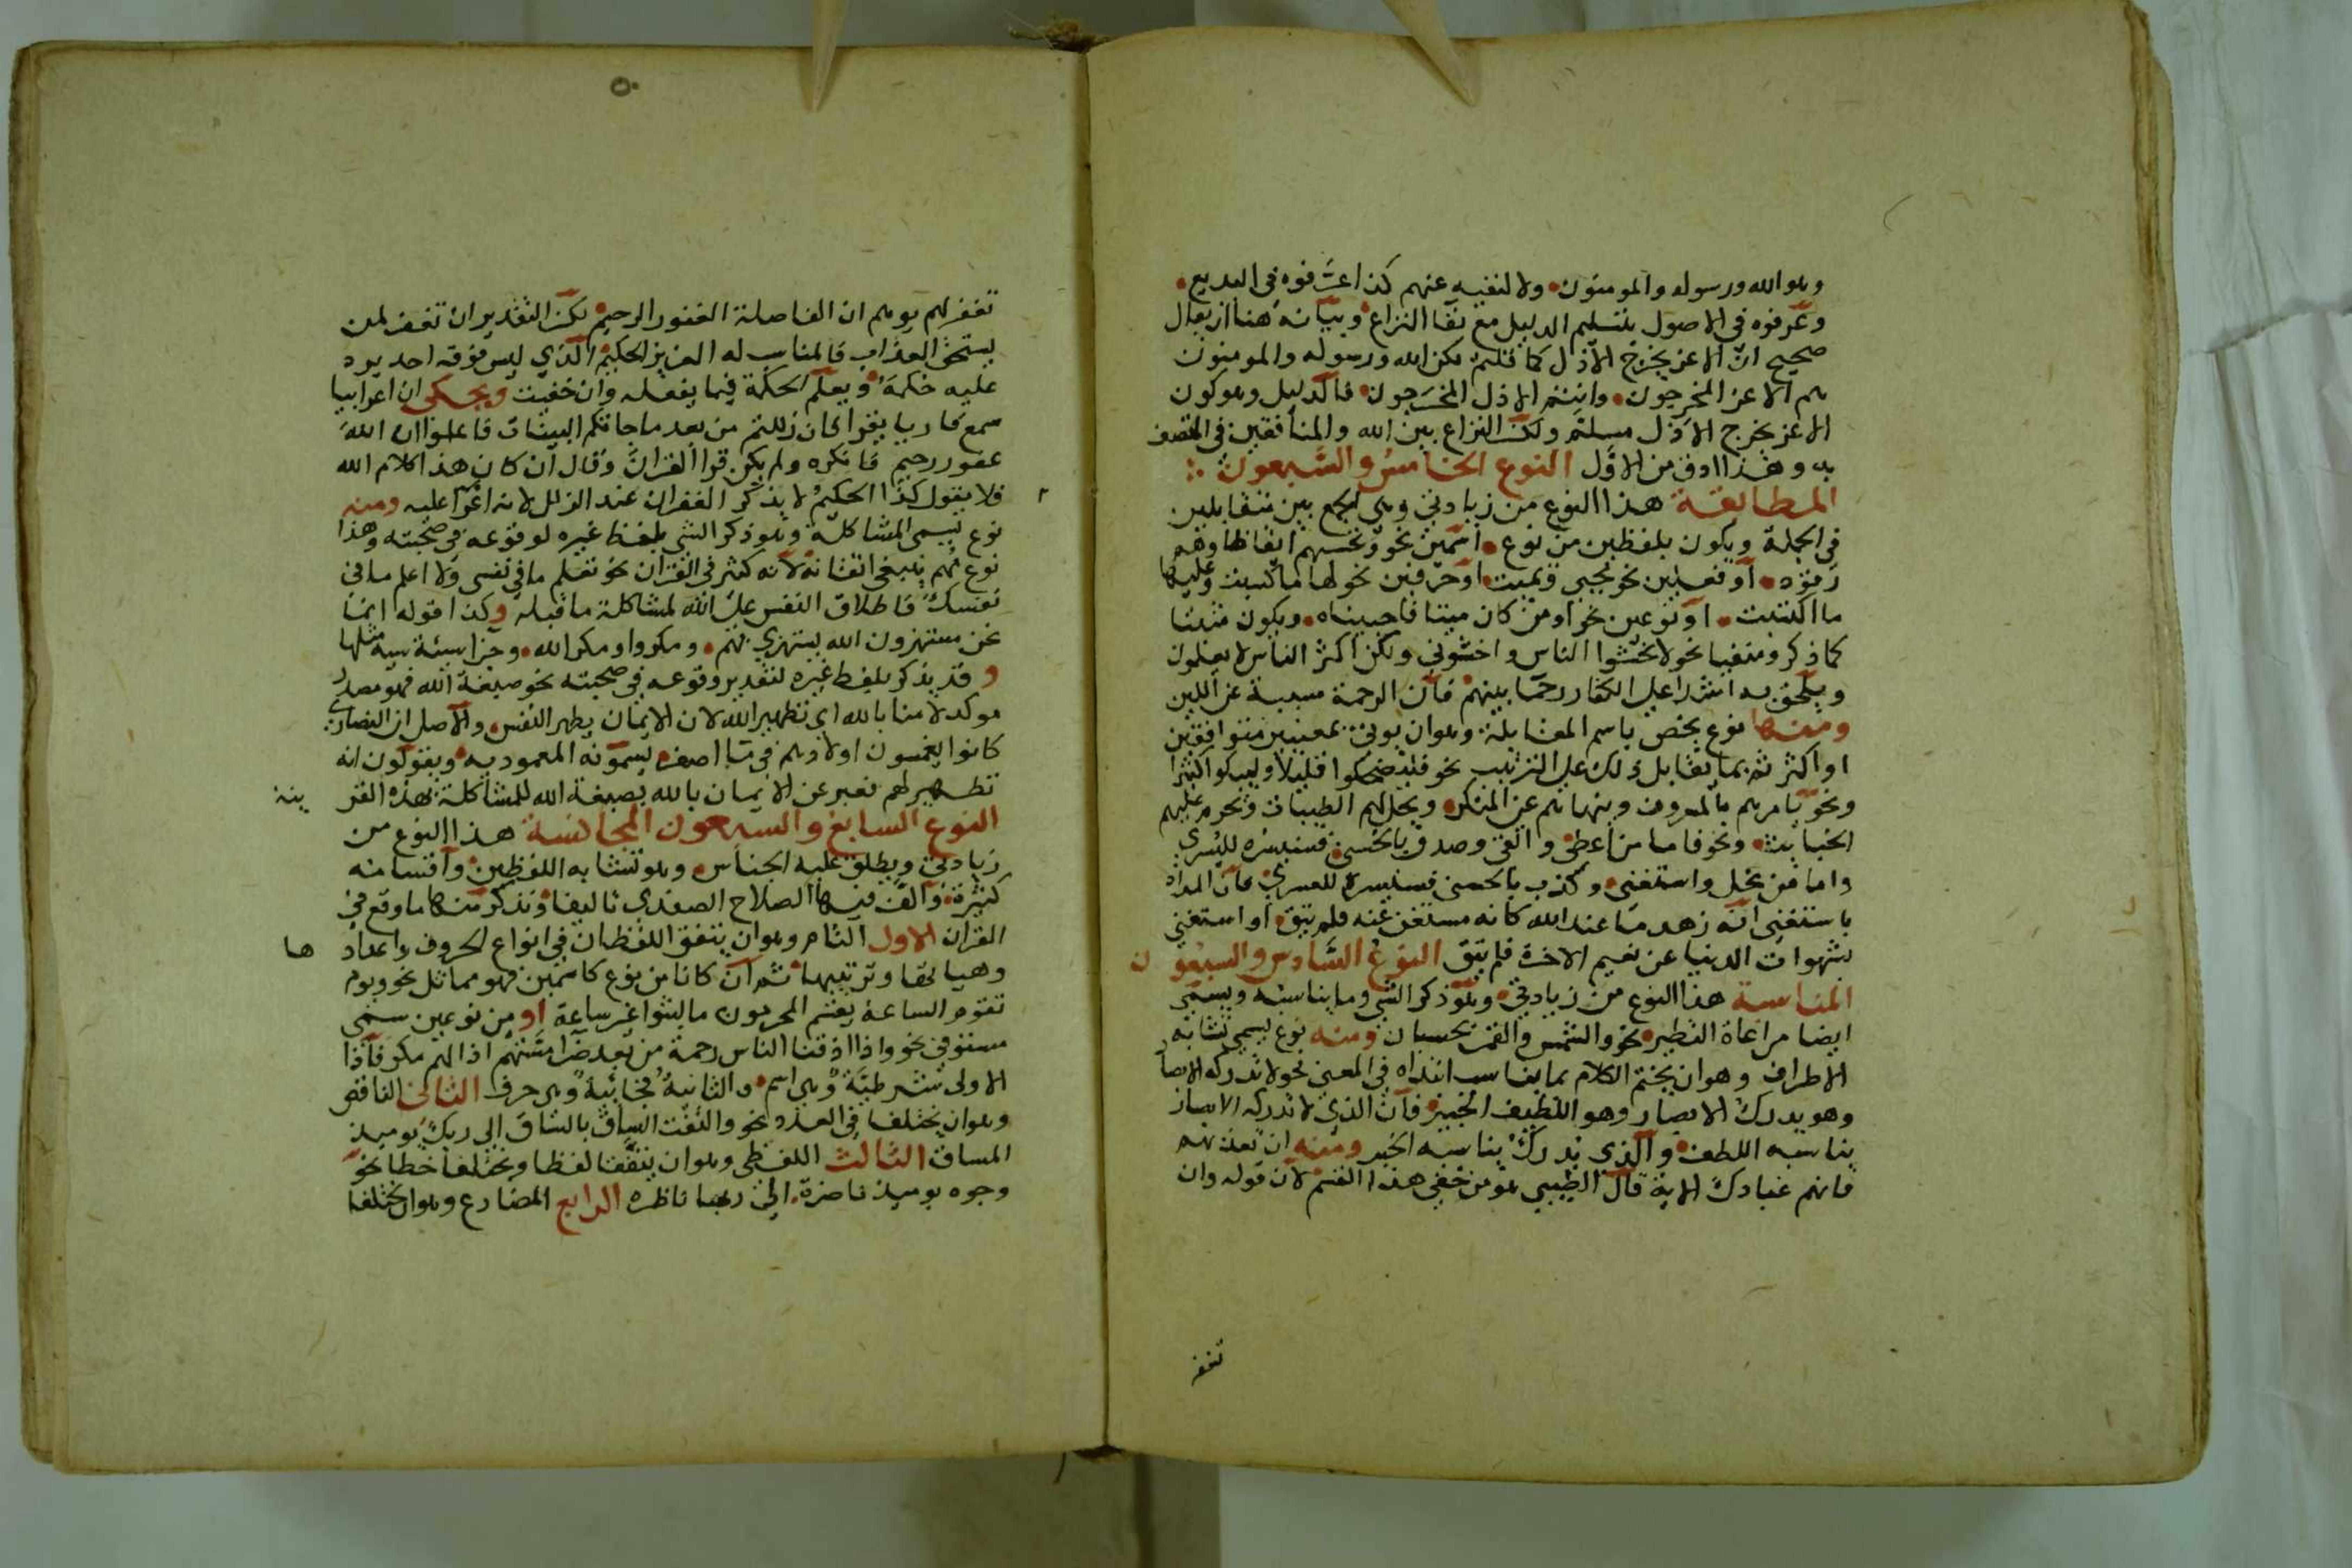 وهو الله ورسوله والمومنون ولا لنفيه عنهم كذا عرفوه في البديع
وعرفوه في الاصول بتسليم الدليل مع بقا النزاع وبيانه هنا ان يقال
صحيح ان الاعز يخرج الاذل كما قلتم لكن الله ورسوله والمومنون
هم الاعز المخرجون وانتم الاذل المخرجون فالدليل وهو كون
الاعز يخرج الاذل مسلم ولكن النزاع بين الله والمنافقين في المتصف
به وهذا ادق من الاول النوع الخامس والسبعون
المطابقة هذا النوع من زيادتي وهي الجمع بين متقابلين
في الجملة ويكون بلفظين من نوع اسمين نحو وتحسبهم ايقاظا وهم
رقود او فعلين نحو يحيي ويميت او حرفين نحو لها ما كسبت وعليها
ما اكتسبت او نوعين نحو اومن كان ميتا فاحييناه ويكون مثبتا
كما ذكر ومنفيا نحو لا تخشوا الناس واخشوني ولكن اكثر الناس لا يعلمون
ويلحق به اشدا على الكفار رحما بينهم فان الرحمة مسببة عن اللين
ومنها نوع يخص باسم المقابلة وهو ان يوتى بمعنيين متوافقين
او اكثر ثم بما يقابل ذلك على الترتيب نحو فليضحكوا قليلا وليبكوا كثيرا
ونحو يامرهم بالمعروف وينهاهم عن المنكر ويحل لهم الطيبات ويحرم عليهم
الخبايث ونحو فاما من اعطى واتقى وصدق بالحسنى فسنيسره لليسرى
واما من بخل واستغنى وكذب بالحسنى فسنيسره للعسرى فان المراد
باستغنى انه زهد مما عند الله كانه مستغن عنه فلم يتق او استغنى
بشهوات الدنيا عن نعيم الاخرة فلم يتق النوع السادس والسبعو
ن
المناسبة هذا النوع من زيادتي وهو ذكر الشي وما يناسبه ويسمى
ايضا مراعاة النظير نحو والشمس والقمر بحسبان ومنه نوع يسمى تشابه
الاطراف وهو ان يختم الكلام بما يناسب ابتداه في المعنى نحو لا تدركه الابصا
وهو يدرك الابصار وهو اللطيف الخبير فان الذي لا تدركه الابصار
يناسبه اللطف والذي يدرك يناسبه الخبير ومنه ان تعذبهم
فانهم عبادك الاية قال الطيبي هو من خفي هذا القسم لان قوله وان
تغفر
٥٠
تغفر لهم يوهم ان الفاصلة الغفور الرحيم لكن التقدير ان تغفر لمن
يستحق العذاب فالمناسب له العزيز الحكيم الذي ليس فوقه احد يرد
عليه حكمه ويعلم الحكمة فيما يفعله وان خفيت ويحكى ان اعرابيا
سمع قاريا يقرا فان زللتم من بعد ما جاتكم البينات فاعلموا ان الله
غفور رحيم فانكره ولم يكن قرا القران وقال ان كان هذا كلام الله
فلا يقول كذا الحكيم لا يذكر الغفران عند الزلل لانه اغرا عليه ومنه
نوع يسمى المشاكلة وهو ذكر الشي بلفظ غيره لوقوعه في صحبته وهذا
نوع مهم ينبغي اتقانه لانه كثر في القران نحو تعلم ما في نفسي ولا اعلم ما في
نفسك فاطلاق النفس على الله لمشاكلة ما قبله وكذا قوله انما
نحن مستهزون الله يستهزي بهم ومكروا ومكر الله وجزا سيئة سيئة مثلها
وقد يذكر بلفظ غيره لتقدير وقوعه في صحبته نحو صبغة الله فهو مصدر
موكد لامنا بالله اي تطهير الله لان الايمان يطهر النفس والاصل ان النصارى
كانوا يغمسون اولادهم في ما اصفر يسمونه المعمودية ويقولون انه
تطهير لهم فعبر عن الايمان بالله بصبغة الله للمشاكلة بهذه القر
ينة
النوع السابع والسبعون المجانسة هذا النوع من
زيادتي ويطلق عليه الجناس وهو تشابه اللفظين واقسامه
كثيرة والف فيها الصلاح الصفدي تاليفا ونذكر منها ما وقع في
القران الاول التام وهو ان يتفق اللفظان في انواع الحروف واعداد
ها
وهياتها وترتيبها ثم ان كانا من نوع كاسمين فهو مماثل نحو ويوم
تقوم الساعة يقسم المجرمون ما لبثوا غير ساعة او من نوعين سمي
مستوفى نحو واذا اذقنا الناس رحمة من بعد ضرا مستهم اذا لهم مكر فاذا
الاولى شرطية وهي اسم والثانية فجائية وهي حرف الثاني الناقص
وهو ان يختلفا في العدد نحو والتفت الساق بالساق الى ربك يوميذ
المساق الثالث اللفظي وهو ان يتفقا لفظا ويختلفا خطا نحو
وجوه يوميذ ناضرة الى ربها ناظره الرابع المضارع وهو ان يختلفا